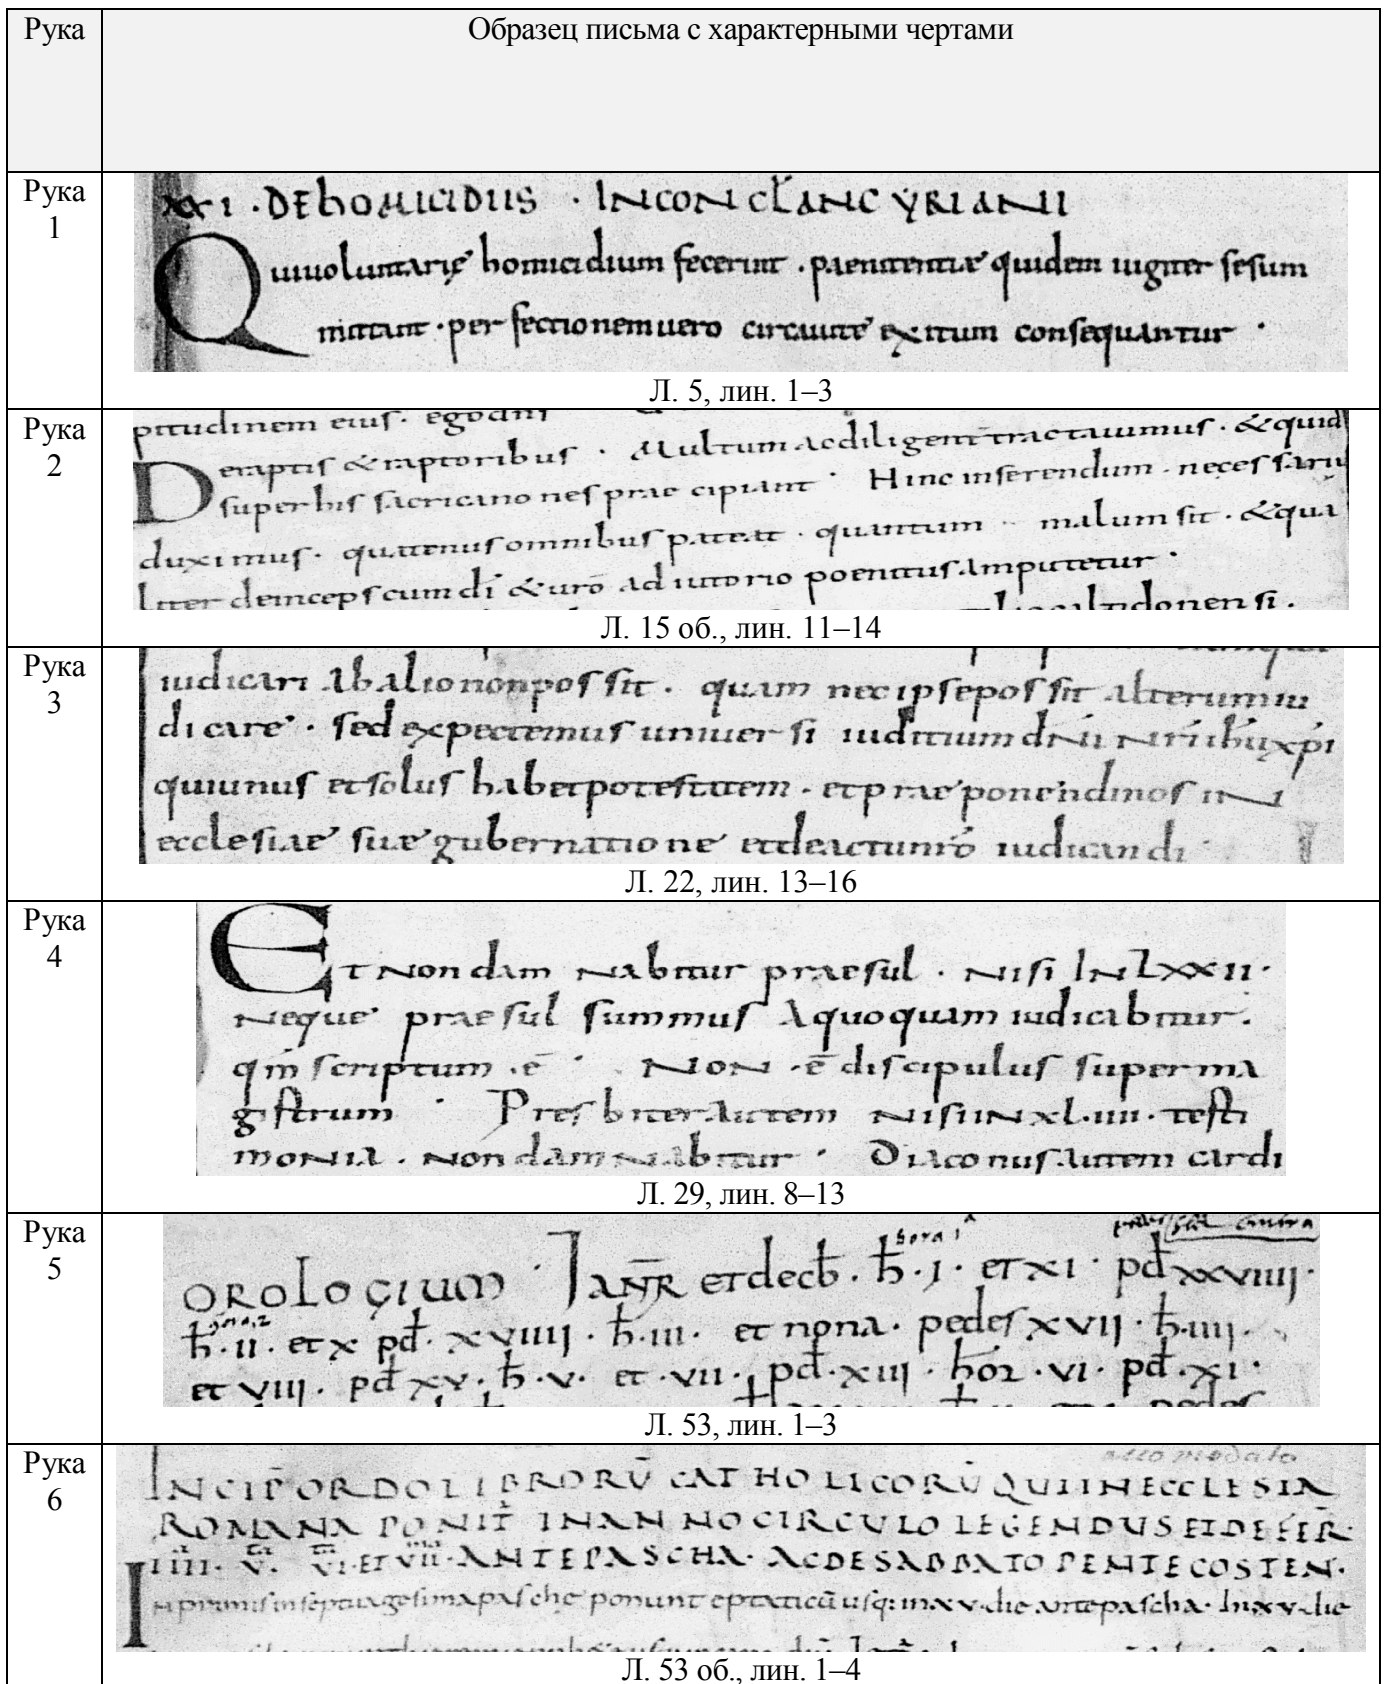 Рука Образец письма с характерными чертами
Рука 1
XXI · DEhOMICIDIIS · INCONCL ANCYRIANII
Quiuoluntarię homicidium fecerint · paenitentiae quidem iugiter sesum
mittant · perfectionem uero circauitę exitum consequantur ·
Л. 5, лин. 1–3
Рука 2
pitudinem eius.
Deraptis & raptoribus · Multum acdiligent tractauimus · & quid
superhis sacricanones praecipiant · Hinc inferendum · necessariū
duximus · quatenus omnibus pateat · quantum malum sit · & qua
liter deinceps cum di & nro adiutorio poenitus amputetur ·
Л. 15 об., лин. 11–14
Рука 3
iudicari abalio nonpossit · quam nec ipsepossit alterum iu
dicare · sed expectemus uniuersi iuditium dni nri ihu xpi
quiunus et solus habet potestatem · et praeponendi nos in
ecclesiae suae gubernatione et deactu nro iudicandi
Л. 22, лин. 13–16
Рука 4
Et Non damnabitur praesul · nisi IN LXXII ·
Neque praesul summus Aquoquam iudicabitur ·
qm scriptum · ē · NON · ē discipulus superma
gistrum · Presbiter autem NISI IN XL · IIII · testi
monia · Non damnabitur · Diaconus autem cardi
Л. 29, лин. 8–13
Рука 5
hora 1
OROLOGIUM · IANR et decb · h · I · et XI · pd XXVIIII ·
h · II · et X pd · XVIIII · h · III · et nona · pedes XVII · h · IIII ·
et VIII · pd XV · h · V · et · VII · pd · XIII · hor · VI · pd · XI ·
Л. 53, лин. 1–3
Рука 6
accomodato
INCIP ORDO LIBRORŪ CATHOLICORŪ QUI IN ECCLESIA
ROMANA PONIT IN ANNO CIRCULO LEGENDUS
IIII · V · VI · ET VII · ANTE PASCHA · AC DE SABBATO PENTECOSTEN ·
Inprimis in septuagesima pasche ponunt eptaticū usq: in xv · die ante pascha · In xv · die
Л. 53 об., лин. 1–4